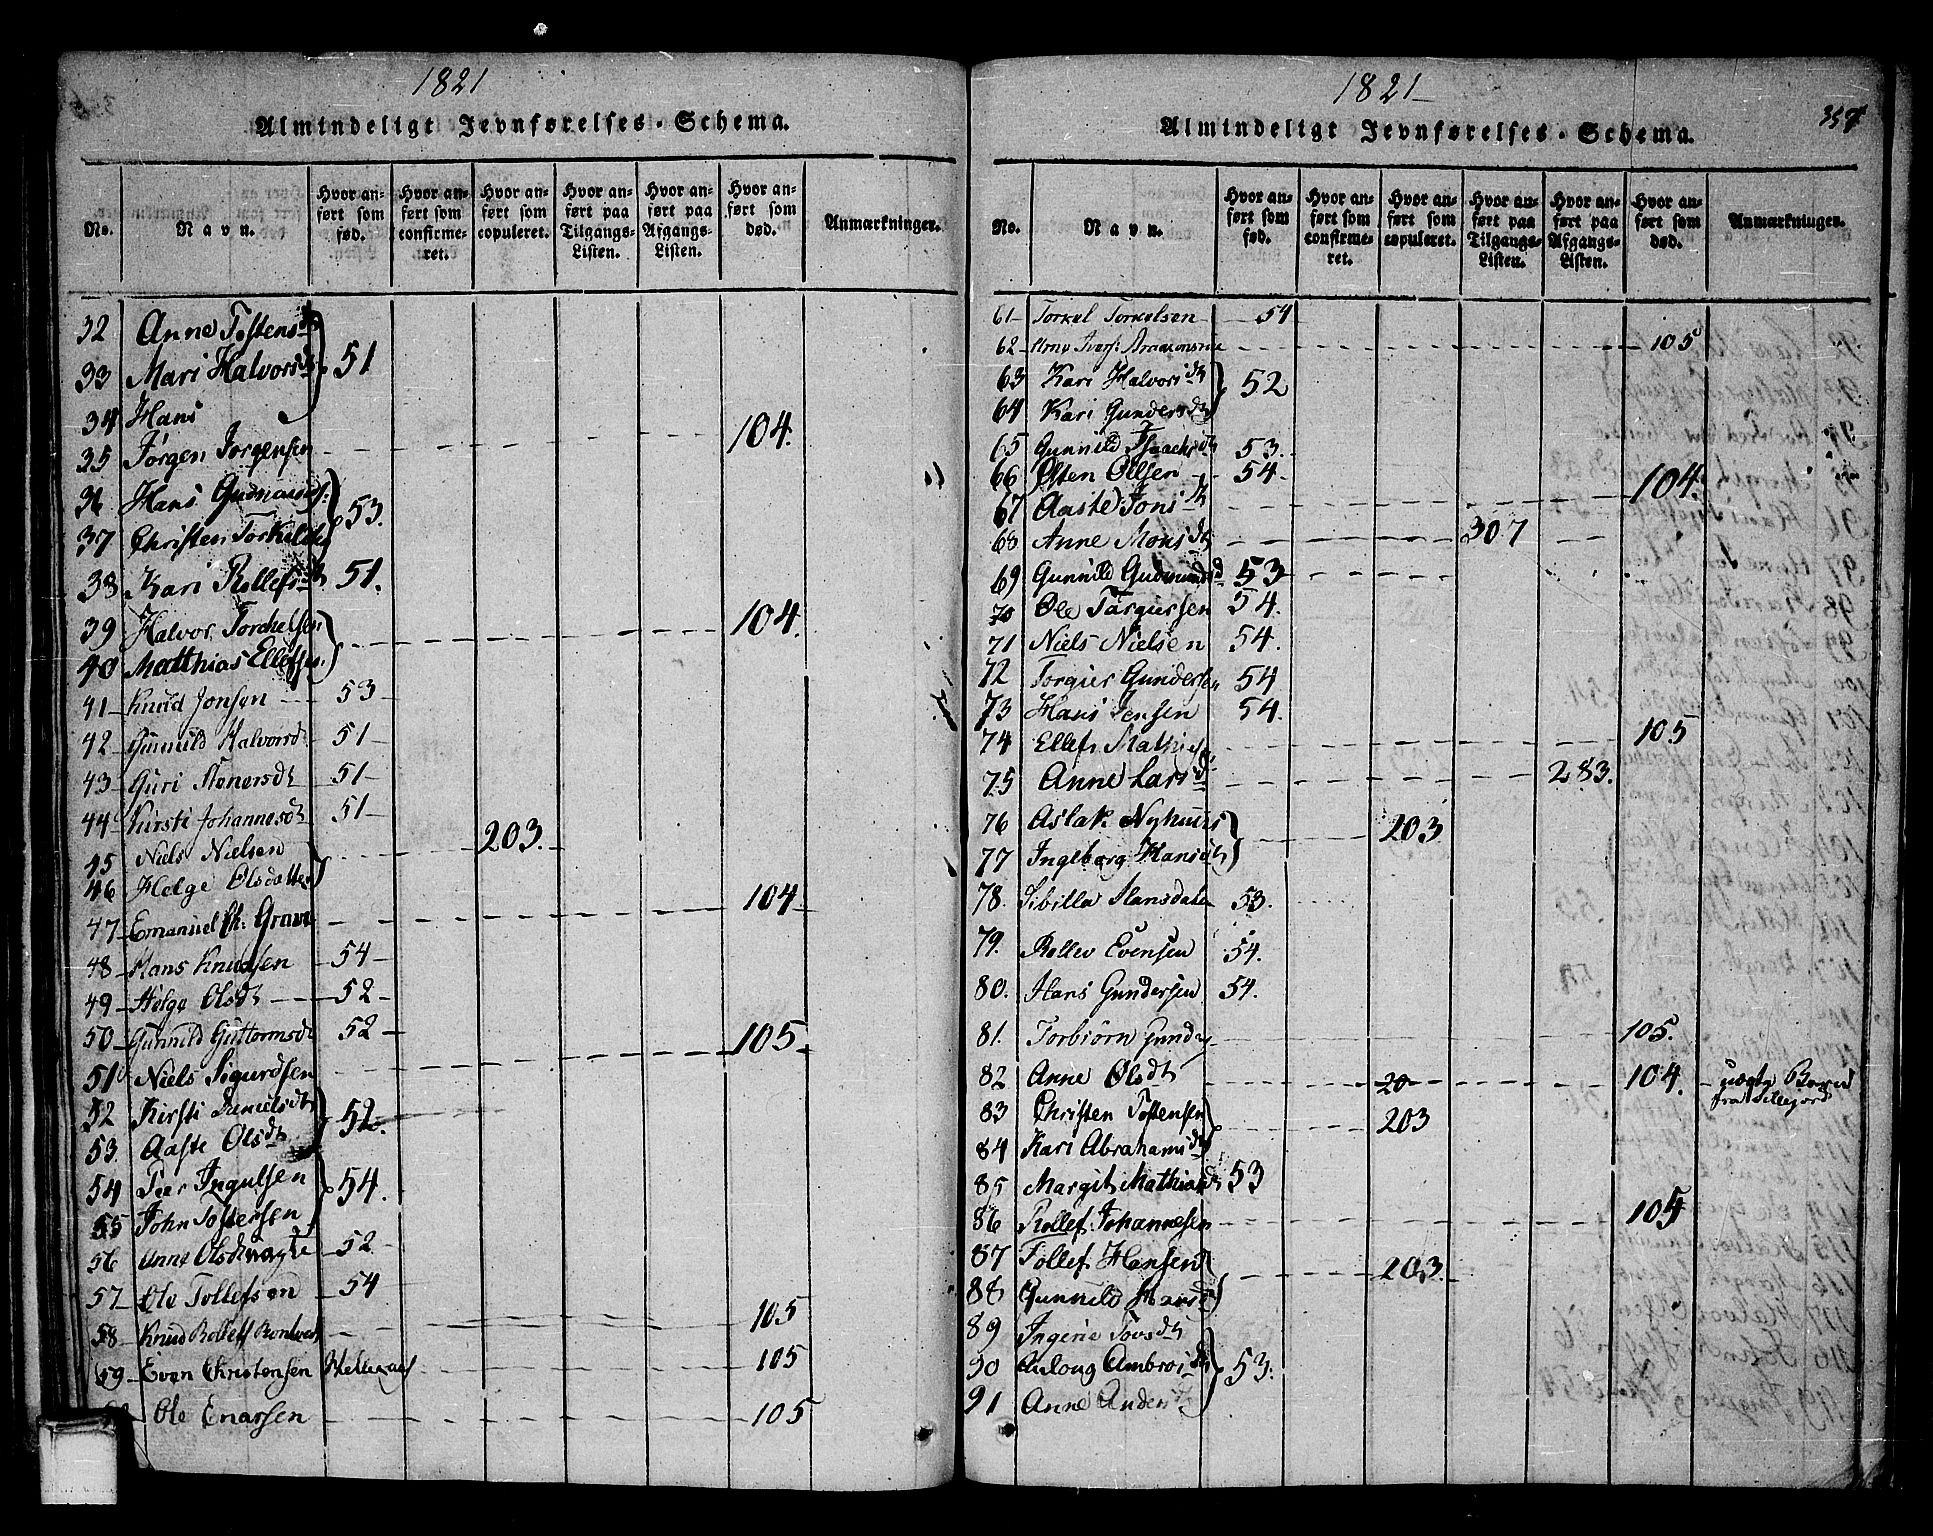 1821
Almindeligt Jevnførelses-Schema.
No. Navn. Hvor anført som fød. Hvor anført som confirmeret. Hvor anført som copuleret. Hvor anført paa Tilgangs-Listen. Hvor anført paa Afgangs-Listen. Hvor anført som død. Anmærkninger.
32 Anne Tostensdt
33 Mari Halvorsdt 51
34 Hans
35 Jørgen Jørgensen 104.
36 Hans Gudmands:
37 Christen Torkelsen 53.
38 Kari Rollefsdt 51.
39 Halvor Torchelsen 104.
40 Matthias Ellefsen.
41 Knud Jonsen 53
42 Gunnild Halvorsdt 51
43 Guri Stenersdt 51
44 Kirsti Johannesdt 51
45 Niels Nielsen 203.
46 Helge Olsdatter
47 Emanuel Ch: Grave 104
48 Hans Knudsen 54
49 Helge Olsdt 52
50 Gunnild Guttormsdt 52
51 Niels Sigurdsen 105
52 Kirsti Danielsdt 52.
53. Aaste Olsdt
54 Peer Ingulsen 54.
55 John Tostersen
56 Anne Olsd 52
57 Ole Tollefsen 54
58 Knud Rollefs 105
59 Even Christensen 105
Ole Enarsen 105
1821
357
Almindeligt Jevnførelses-Schema.
No. Navn. Hvor anført som fød. Hvor anført som confirmeret. Hvor anført som copuleret. Hvor anført paa Tilgangs-Listen. Hvor anført paa Afgangs-Listen. Hvor anført som død. Anmærkninger.
61 Torkel Torkelsen 54
62 Ivers: 105
63 Kari Halvorsdt 52
64 Kari Gundersdt
65 Gunnild Isaachsdt 53.
66 Østen Olsen 54.
67 Aaste Jonsdt 104.
68 Anne Monsdt 307
69 Gunnild Gudmundsd 53
70 Ole Targiersen 54.
71 Niels Nielsen 54.
72 Torgier Gundersen 54
73 Hans Jensen 54.
74 Ellef Mathies 105
75 Anne Larsd 283.
76 Aslak Nyhuus 203
77 Ingeborg Hansdt
78. Sibilla Hansdater 53.
79. Rollev Evensen 54.
80. Hans Gundersen 54.
81. Torbiörn Gunders 105.
82 Anne Olsdt 20 104. uægte Barn
fra Sillejord
83 Christen Tostensen 203
84 Kari Abrahamsdt
85 Margit Mathiasd 53
86 Rollef Johannesen 105
87 Tollef Hansen 203.
88 Gunnild Hansd
89 Ingerie Tovsdt
90 Asloug Ambrosdt 53.
91 Anne Andersdt